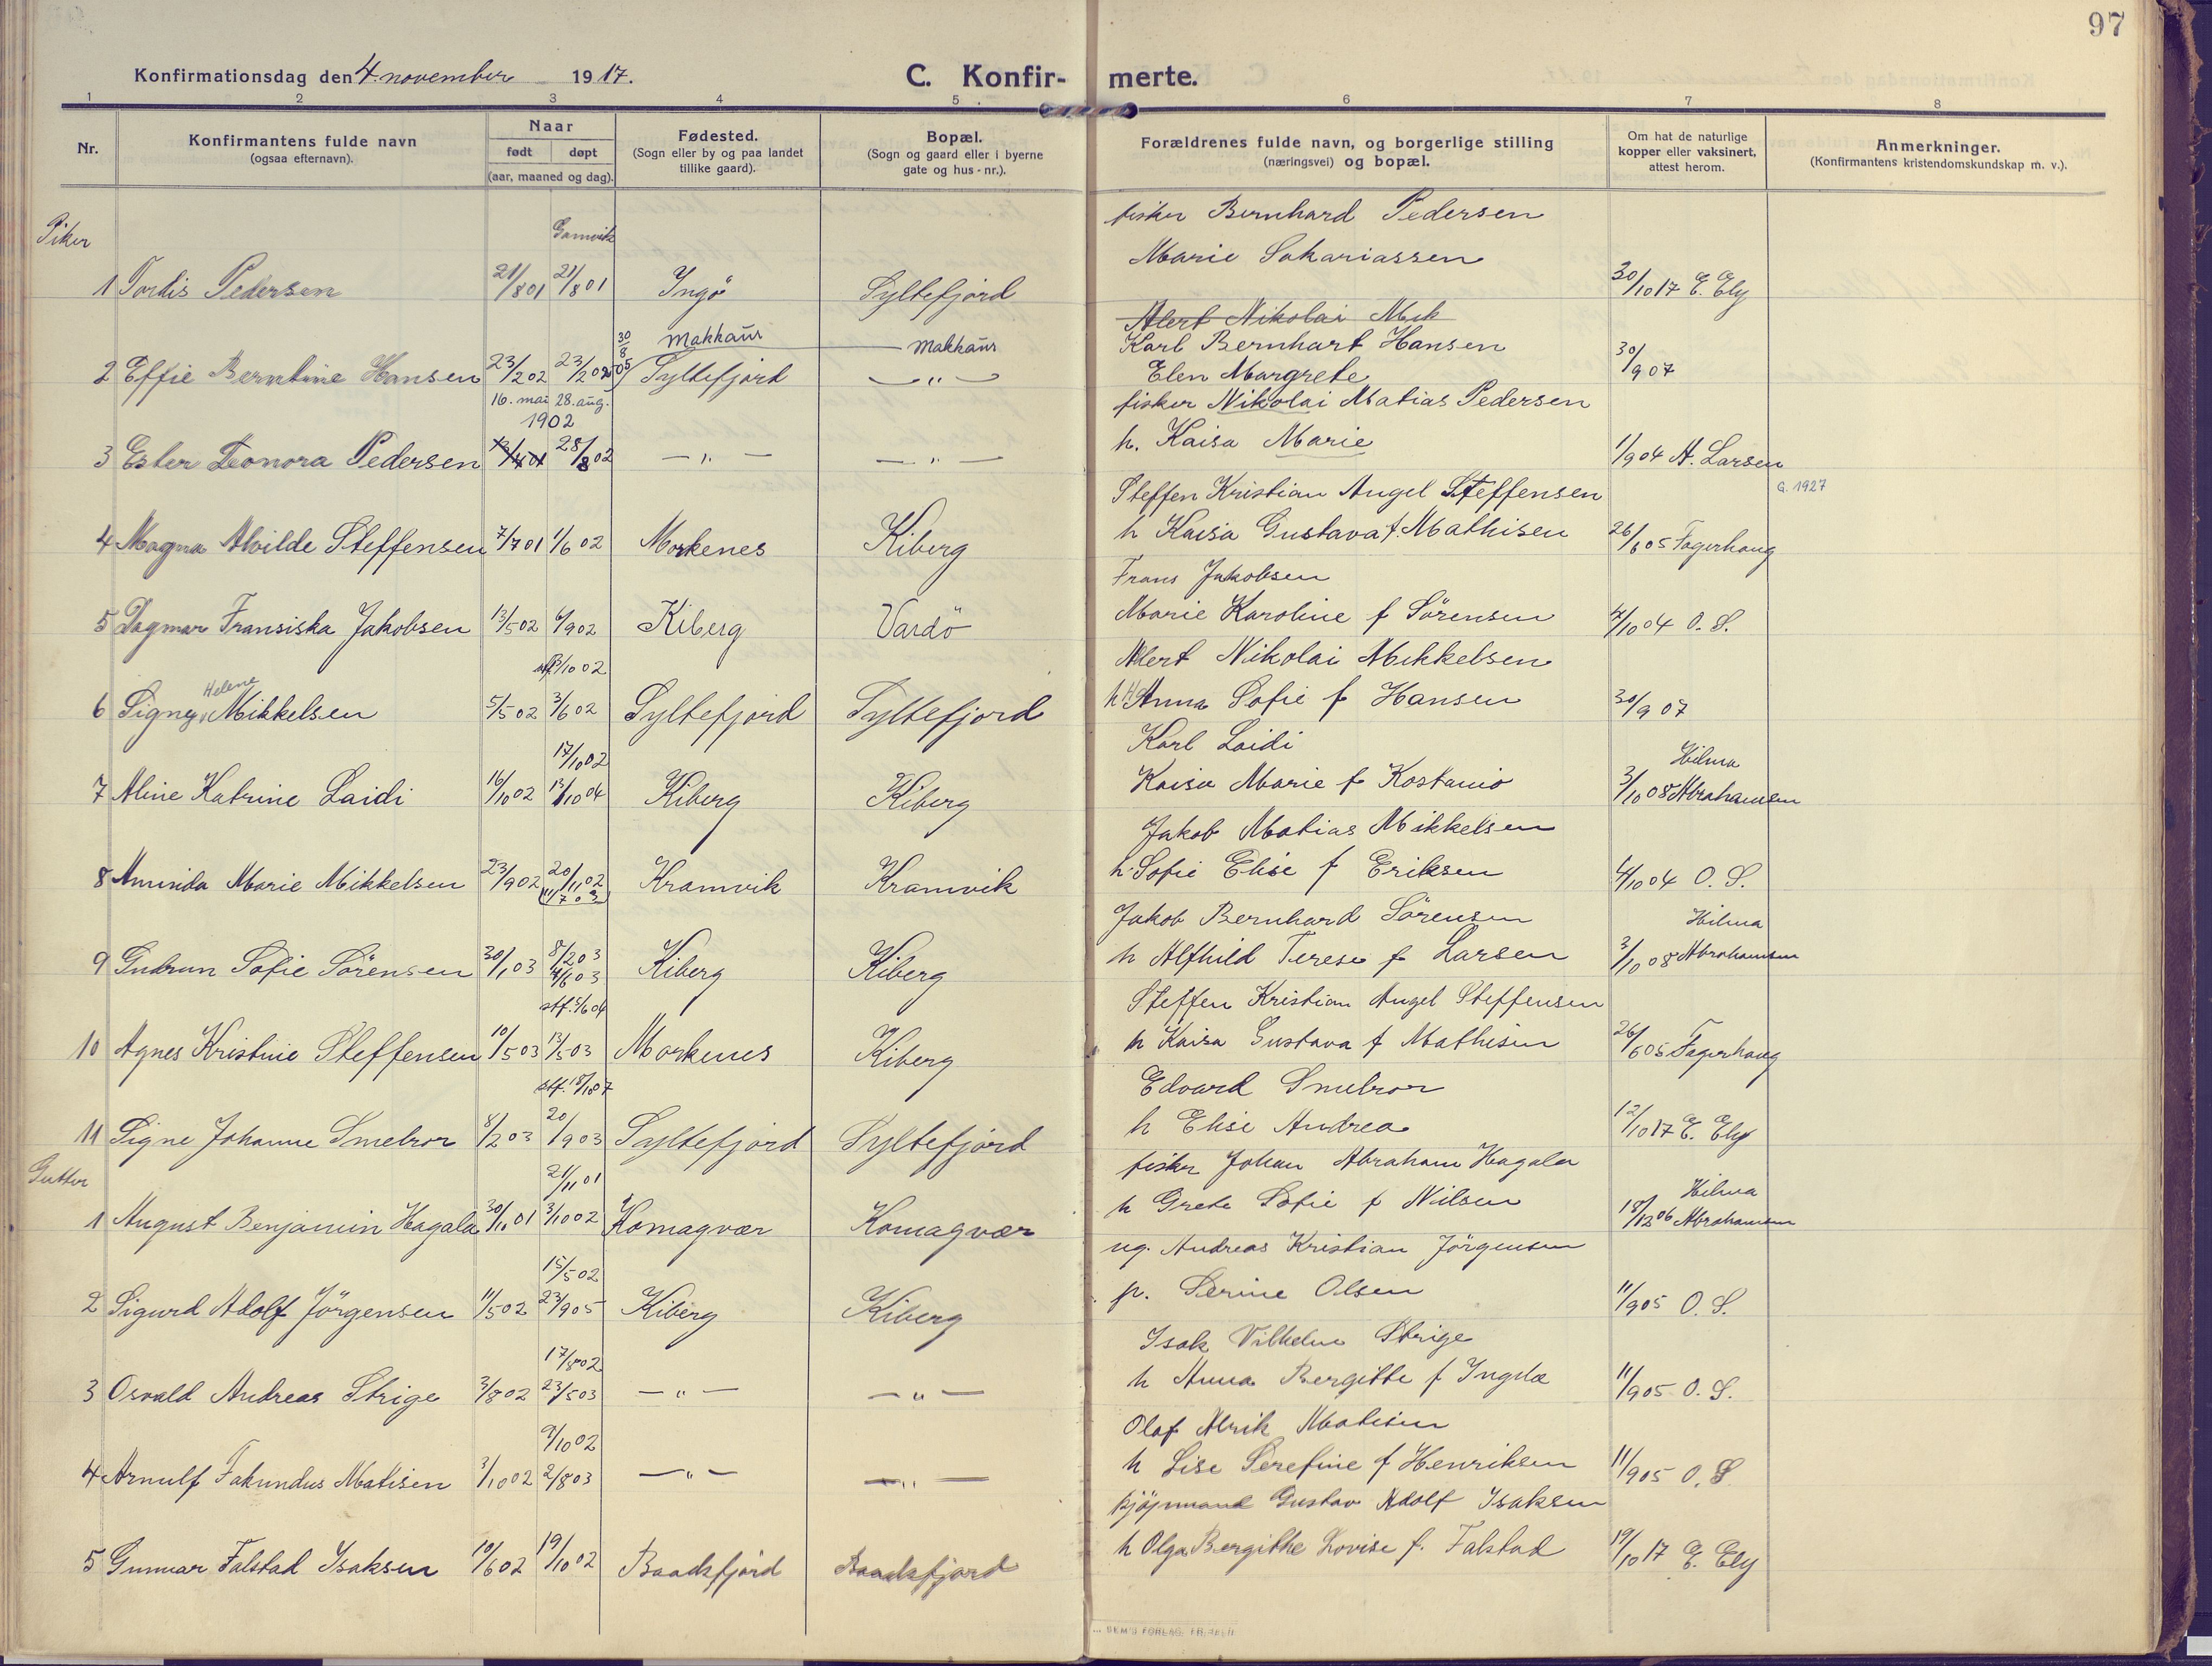 97
Konfirmationsdag den 4. november 1917.
C. Konfir- merte.
1 2 3 4 5 6 7 8
Nr.
Konfirmantens fulde navn
(ogsaa efternavn).
Naar
født døpt
(aar, maaned og dag).
Fødested.
(Sogn eller by og paa landet
tillike gaard).
Bopæl.
(Sogn og gaard eller i byerne
gate og hus-nr.).
Forældrenes fulde navn, og borgerlige stilling
(næringsvei) og bopæl.
Om hat de naturlige
kopper eller vaksinert,
attest herom.
Anmerkninger.
(Konfirmantens kristendomskundskap m. v.).
Piker
Gamvik
fisker Bernhard Pedersen
Marie Sakariassen
1 Tordis Pedersen 21/8 01 21/8 01 Ingö Syltefjord 30/10 17 E. Ely
Alert Nikolai Mik
30/8 05 Makkaur Makkaur
Karl Bernhart Hansen
2 Effie Berntine Hansen 23/2 02 23/2 02 Syltefjord — " — Elen Margrete 30/9 07
16. mai 28. aug.
1902
fisker Nikolai Matias Pedersen
3 Ester Leonora Pedersen 28/8 02 — " — — " — h. Kaisa Marie 1/9 04 A. Larsen
G. 1927
Steffen Kristian Angel Steffensen
4 Magna Alvilde Steffensen 7/7 01 1/6 02 Morkenes Kiberg h Kaisa Gustava f. Mathisen 26/6 05 Fagerhaug
Frans Jakobsen
5 Dagmar Fransiska Jakobsen 13/5 02 6/9 02 Kiberg Vardö Marie Karoline f Sörensen 4/10 04 O. S.
stf. 13/10 02
Alert Nikolai Mikkelsen
Helene
6 Signe Mikkelsen 5/5 02 3/6 02 Syltefjord Syltefjord h Anna Sofie f Hansen 30/9 07
17/10 02
Karl Laidi
Hilma
7 Aline Katrine Laidi 16/10 02 13/10 04 Kiberg Kiberg Kaisa Marie f Kostamo 3/10 08 Abrahamsen
Jakob Matias Mikkelsen
8 Amanda Marie Mikkelsen 23/9 02 20/11 02 Kramvik Kramvik h. Sofie Elise f Eriksen 4/10 04 O. S.
(11/7 03)
Jakob Bernhard Sörensen
Hilma
9 Gudrun Sofie Sörensen 30/1 03 8/2 03 Kiberg Kiberg h Alfhild Terese f Larsen 3/10 08 Abrahamsen
4/6 03
stf. 5/6 04
Steffen Kristian Angel Steffensen
10 Agnes Kristine Steffensen 10/5 03 13/5 03 Morkenes Kiberg h Kaisa Gustava f Mathisen 26/6 05 Fagerhaug
stf. 18/10 07
Edvard Smelror
11 Signe Johanne Smelror 8/2 03 20/9 03 Syltefjord Syltefjord h Elise Andrea 12/10 17 E. Ely
Gutter
21/11 01
fisker Johan Abraham Hagala
Hilma
1 August Benjamin Hagala 30/10 01 3/10 02 Komagvær Komagvær h Grete Sofie f Nilsen 18/12 06 Abrahamsen
15/5 02
ug. Andreas Kristian Jörgensen
2 Sigurd Adolf Jörgensen 11/5 02 23/9 05 Kiberg Kiberg p. Serine Olsen 11/9 05 O. S.
17/8 02
Isak Vilhelm Strige
3 Osvald Andreas Strige 3/8 02 23/5 03 — " — — " — h Anna Bergitte f Ingilæ 11/9 05 O. S.
9/10 02
Olaf Alrik Matisen
4 Arnulf Fakundus Matisen 3/10 02 2/8 03 — " — — " — h Lise Serefine f Henriksen 11/9 05 O. S
kjöpmand Gustav Adolf Isaksen
5 Gunnar Falstad Isaksen 10/6 02 19/10 02 Baadsfjord Baadsfjord h Olga Bergithe Lovise f. Falstad 19/10 17 E. Ely